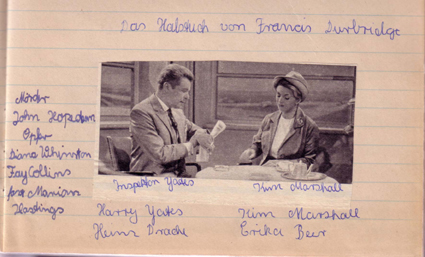 Das Halstuch von Francis Durbridge
Mörder
John Hopedean
Opfer
Diana
Fay Collins
Marian
Hastings
Inspektor Yates
Kim Marshall
Harry Yates
Kim Marshall
Heinz Drache
Erika Beer